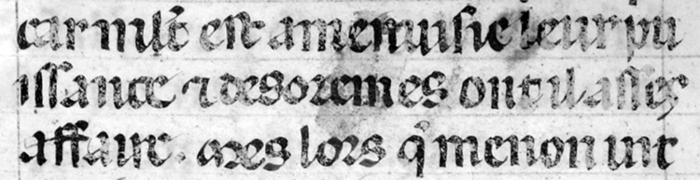 car nilt̃ est amenuisie leur pu
issance ⁊ desoremes ont il assez
affaire. ares lors q̃ menon uit